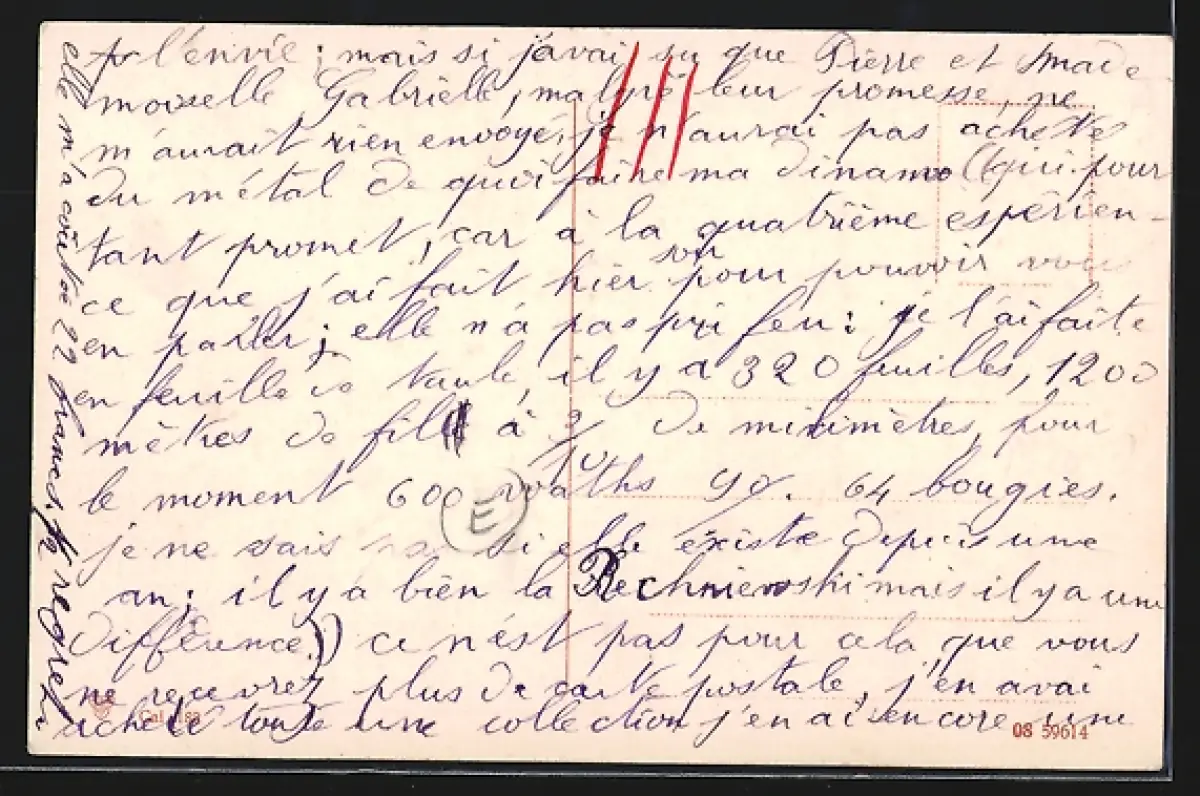 pr l'envie ; mais si j'avai su que Pierre et Made
moiselle Gabrielle, malgré leur promesse, ne
m'aurait rien envoyé, je n'aurai pas acheté
du métal de quoi faire ma dinamo (qui pour
tant promet, car à la quatrième espérien-
ce que j'ai fait hier soir pour pouvoir vous
en parler ; elle n'a pas pri feu : je l'ai faite
en feuille de taule, il y a 320 feuilles, 1200
mètres de fil à 9/10 de milimètres, pour
le moment 600 waths 90. 64 bougies.
E
je ne sais pas si elle existe depuis une
an ; il y a bien la Rechniewski mais il y a une
différence) ce n'est pas pour cela que vous
ne recevrez plus de carte postale, j'en avai
acheté toute une collection j'en ai encore une
08 59614
elle m'a coûtée 22 francs. 1/2